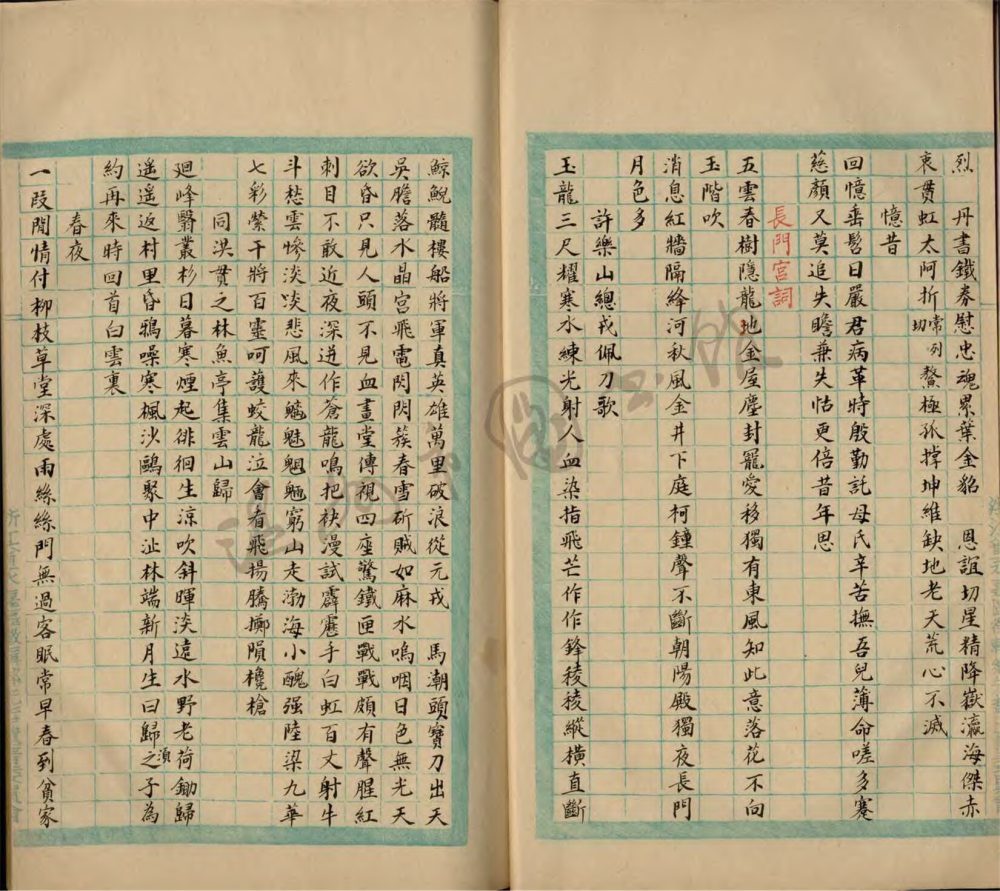 烈　丹書鐵券慰忠魂累葉金貂　恩誼切星精降嶽瀛海傑赤
衷貫虹太阿折常切列鰲極孤撐坤維缺地老天荒心不滅
憶昔
回憶垂髫日嚴君病革時殷勤託母氏辛苦撫吾兒薄命嗟多蹇
慈顏又莫追失瞻兼失怙更倍昔年思
長門宮詞
五雲春樹隱龍地金屋塵封寵愛移獨有東風知此意落花不向
玉階吹
消息紅牆隔絳河秋風金井下庭柯鐘聲不斷朝陽殿獨夜長門
月色多
許樂山總戎佩刀歌
玉龍三尺耀寒水練光射人血染指飛芒作作鋒稜稜縱橫直斷
鯨鯢髓樓船將軍真英雄萬里破浪從元戎　馬潮頭寶刀出天
吳膽落水晶宮飛電閃閃簇春雪斫賊如麻水嗚咽日色無光天
欲昏只見人頭不見血畫堂傳視四座驚鐵匣戰戰頗有聲腥紅
刺目不敢近夜深迸作蒼龍鳴把袂漫試霹靂手白虹百丈射牛
斗愁雲慘淡淡悲風來魑魅魍魎窮山走渤海小醜强陸梁九華
七彩縈干將百靈呵護蛟龍泣會看飛揚騰擲隕欃槍
同洪貫之林魚亭集雲山歸
迴峰翳叢杉日暮寒煙起徘徊生涼吹斜暉淡遠水野老荷鋤歸
遥遥返村里昏鴉噪寒楓沙鷗聚中沚林端新月生曰歸之須子為
約再來時回首白雲裏
春夜
一段閒情付柳枝草堂深處雨絲絲門無過客眠常早春到貧家